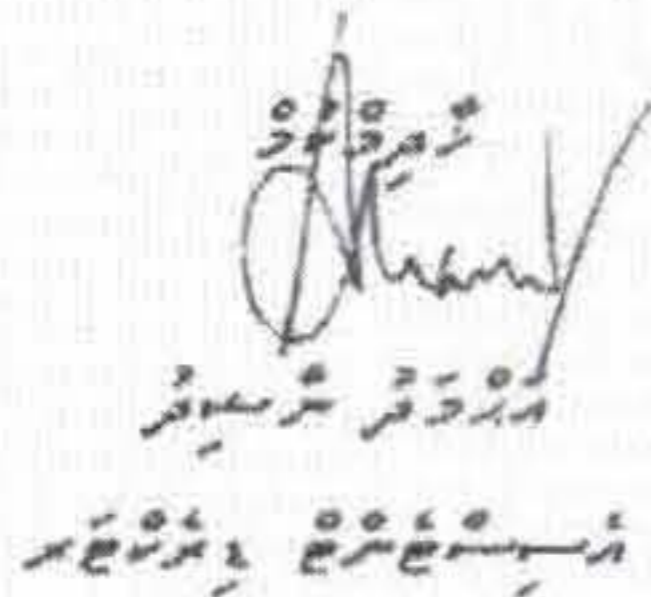 ޚާދިމްކުމް
އަޙްމަދު ރާޝިދު
އެސިސްޓެންޓް ޑިރެކްޓަރ